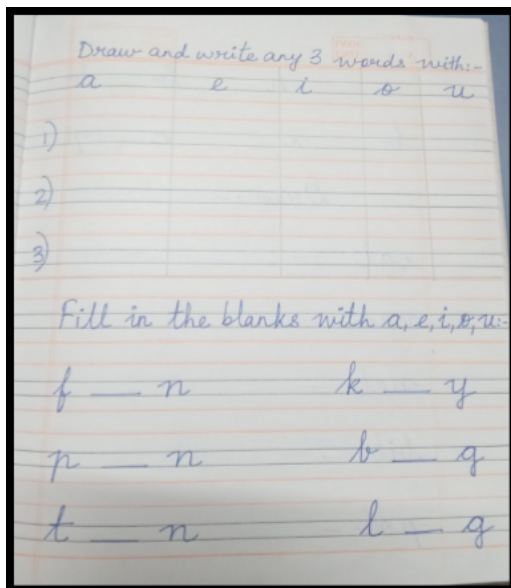 Draw and write any 3 words with:-
a e i o u
1)
2)
3)
Fill in the blanks with a, e, i, o, u:-
f __ n k __ y
p __ n b __ g
t __ n l __ g